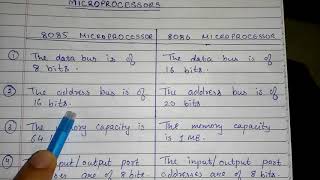 MICROPROCESSORS
8085 MICROPROCESSOR 8086 MICROPROCESSOR
① The data bus is of The data bus is of
8 bits. 16 bits.
② The address bus is of The address bus is of
16 bits. 20 bits
③ The memory capacity is The memory capacity
64 is 1 MB.
④ The input/output port The input/output port
are of 8 bits. addresses are of 8 bits.